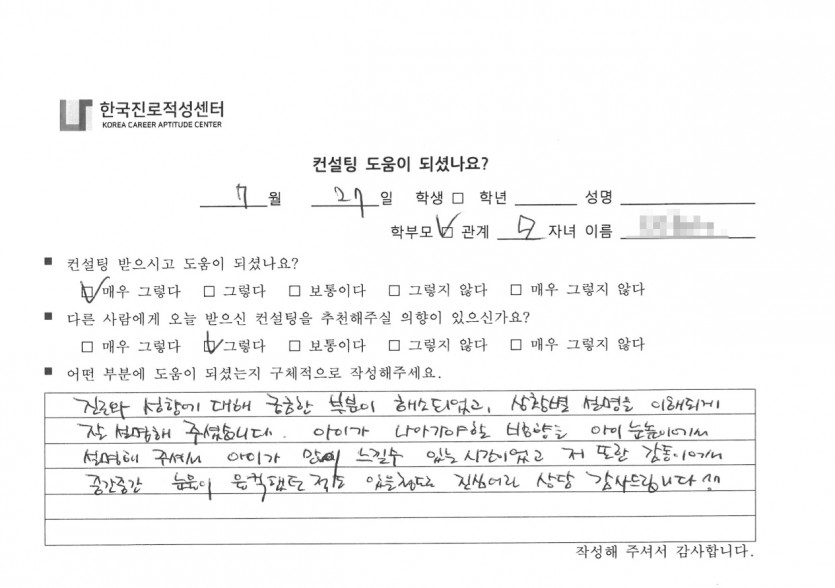 한국진로적성센터
KOREA CAREER APTITUDE CENTER
컨설팅 도움이 되셨나요?
7 월 27 일 학생 □ 학년 성명
학부모 ☑ 관계 모 자녀 이름
■ 컨설팅 받으시고 도움이 되셨나요?
☑ 매우 그렇다 □ 그렇다 □ 보통이다 □ 그렇지 않다 □ 매우 그렇지 않다
■ 다른 사람에게 오늘 받으신 컨설팅을 추천해주실 의향이 있으신가요?
□ 매우 그렇다 ☑ 그렇다 □ 보통이다 □ 그렇지 않다 □ 매우 그렇지 않다
■ 어떤 부분에 도움이 되셨는지 구체적으로 작성해주세요.
진로와 성향에 대해 궁금한 부분이 해소되었고, 상황별 설명을 이해되게
잘 설명해 주셨습니다. 아이가 나아가야할 방향을 아이 눈높이에서
설명해 주셔서 아이가 많이 느낄수 있는 시간이었고 저 또한 감동이어서
중간중간 눈물이 적도 있을정도로 진심어린 상담 감사드립니다
작성해 주셔서 감사합니다.